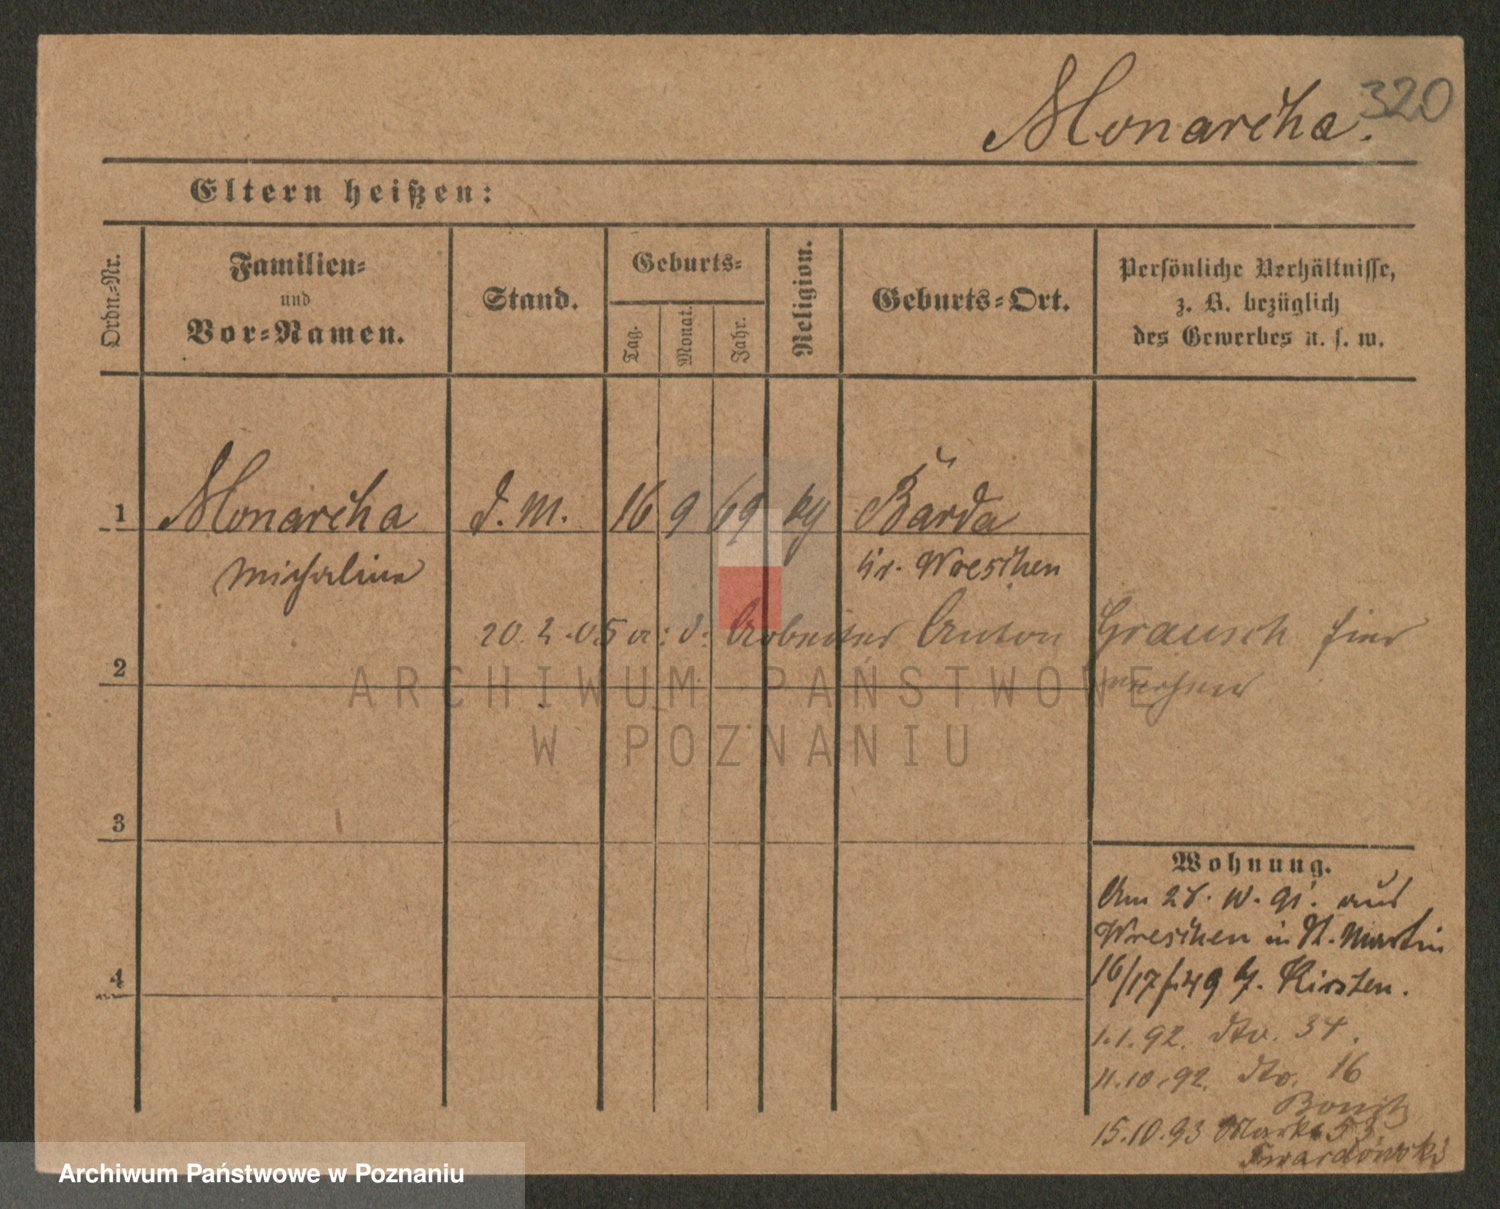 320
Monarcha.
Eltern heißen:
Ordn.-Nr.
Familien-
und
Vor-Namen.
Stand.
Geburts-
Tag.
Monat.
Jahr.
Religion.
Geburts-Ort.
Persönliche Verhältnisse,
z. B. bezüglich
des Gewerbes u. s. w.
1 Monarcha d. M. 16 9 69 Barda
Michalina Kr. Wreschen
20. 2. 05 a: d: Arbeiter Anton Grausch hier
2
3
4
Wohnung.
Am 28. 10. 91. aus
Wreschen in St. Martin
16/17 49 b. Kirsten.
1.1.92. dto. 34.
11.10.92. dto. 16
15.10.93 Markt 53
Twardowski
ARCHIWUM PAŃSTWOWE
W POZNANIU
Archiwum Państwowe w Poznaniu